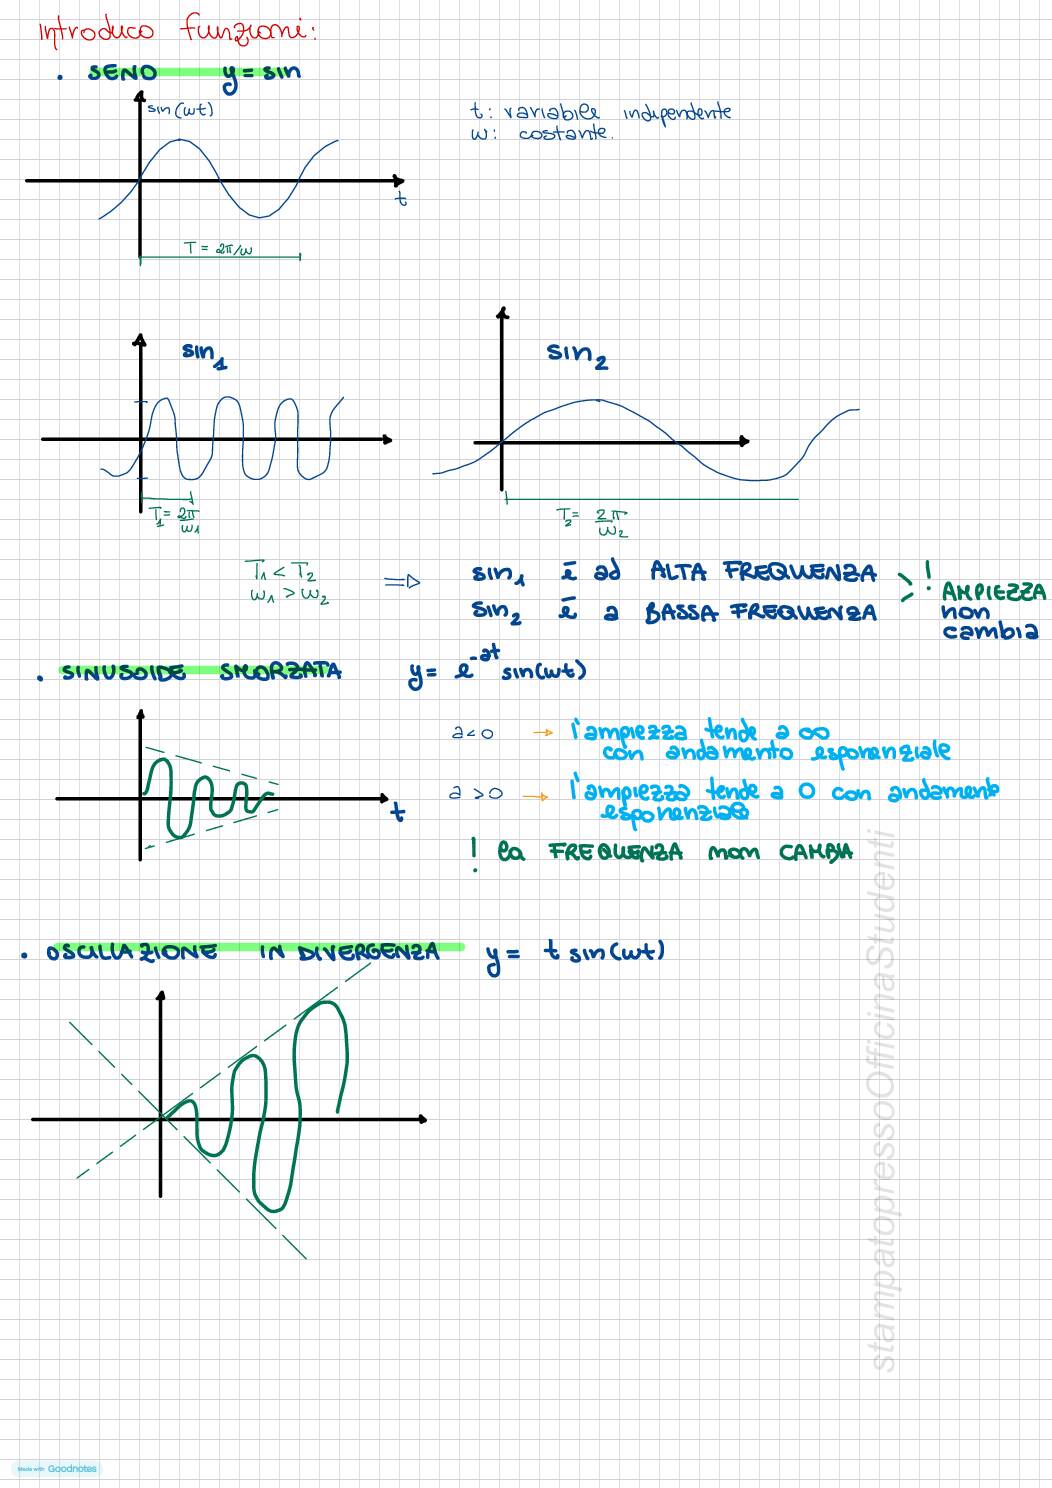 introduco funzioni:
• SENO y = sin
sin(ωt)
t: variabile indipendente
ω: costante.
t
T = 2π/ω
sin₁
sin₂
T₁ = 2π/ω₁
T₂ = 2π/ω₂
T₁ < T₂
ω₁ > ω₂
⇒ sin₁ è ad ALTA FREQUENZA
sin₂ è a BASSA FREQUENZA
! AMPIEZZA
non
cambia
• SINUSOIDE SMORZATA y = e^-at sin(ωt)
a<0 → l'ampiezza tende a ∞
con andamento esponenziale
a >0 → l'ampiezza tende a 0 con andamento
esponenziale
t
! la FREQUENZA non CAMBIA
• OSCILLAZIONE IN DIVERGENZA y = t sin(ωt)
stampatopressoOfficinaStudenti
Made with Goodnotes